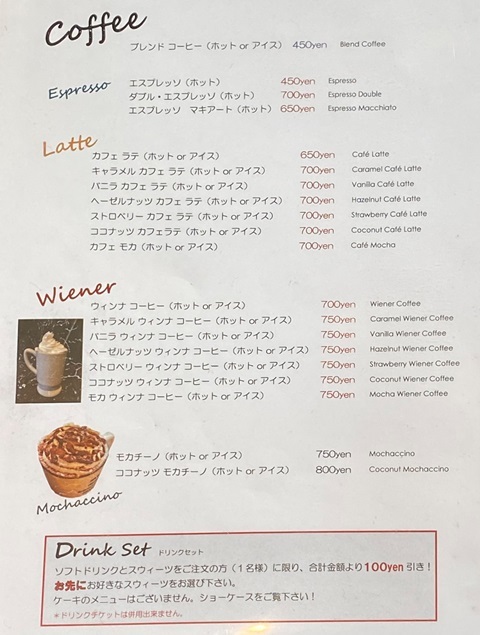 Coffee
ブレンド コーヒー（ホット or アイス） 450yen Blend Coffee
Espresso
エスプレッソ（ホット） 450yen Espresso
ダブル・エスプレッソ（ホット） 700yen Espresso Double
エスプレッソ マキアート（ホット） 650yen Espresso Macchiato
Latte
カフェ ラテ（ホット or アイス） 650yen Café Latte
キャラメル カフェ ラテ（ホット or アイス） 700yen Caramel Café Latte
バニラ カフェ ラテ（ホット or アイス） 700yen Vanilla Café Latte
ヘーゼルナッツ カフェ ラテ（ホット or アイス） 700yen Hazelnut Café Latte
ストロベリー カフェ ラテ（ホット or アイス） 700yen Strawberry Café Latte
ココナッツ カフェラテ（ホット or アイス） 700yen Coconut Café Latte
カフェ モカ（ホット or アイス） 700yen Café Mocha
Wiener
ウィンナ コーヒー（ホット or アイス） 700yen Wiener Coffee
キャラメル ウィンナ コーヒー（ホット or アイス） 750yen Caramel Wiener Coffee
バニラ ウィンナ コーヒー（ホット or アイス） 750yen Vanilla Wiener Coffee
ヘーゼルナッツ ウィンナ コーヒー（ホット or アイス） 750yen Hazelnut Wiener Coffee
ストロベリー ウィンナ コーヒー（ホット or アイス） 750yen Strawberry Wiener Coffee
ココナッツ ウィンナ コーヒー（ホット or アイス） 750yen Coconut Wiener Coffee
モカ ウィンナ コーヒー（ホット or アイス） 750yen Mocha Wiener Coffee
モカチーノ（ホット or アイス） 750yen Mochaccino
ココナッツ モカチーノ（ホット or アイス） 800yen Coconut Mochaccino
Mochaccino
Drink Set ドリンクセット
ソフトドリンクとスウィーツをご注文の方（１名様）に限り、合計金額より100yen 引き！
お先にお好きなスウィーツをお選び下さい。
ケーキのメニューはございません。ショーケースをご覧下さい！
＊ドリンクチケットは併用出来ません。